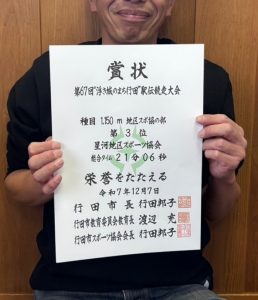 賞状
第67回"浮き城のまち行田"駅伝競走大会
種目 1,150m 地区スポ協の部
第3位
星河地区スポーツ協会
総合タイム 21分06秒
栄誉をたたえる
令和7年12月7日
行田市長 行田邦子
行田市教育委員会教育長 渡辺充
行田市スポーツ協会会長 行田邦子